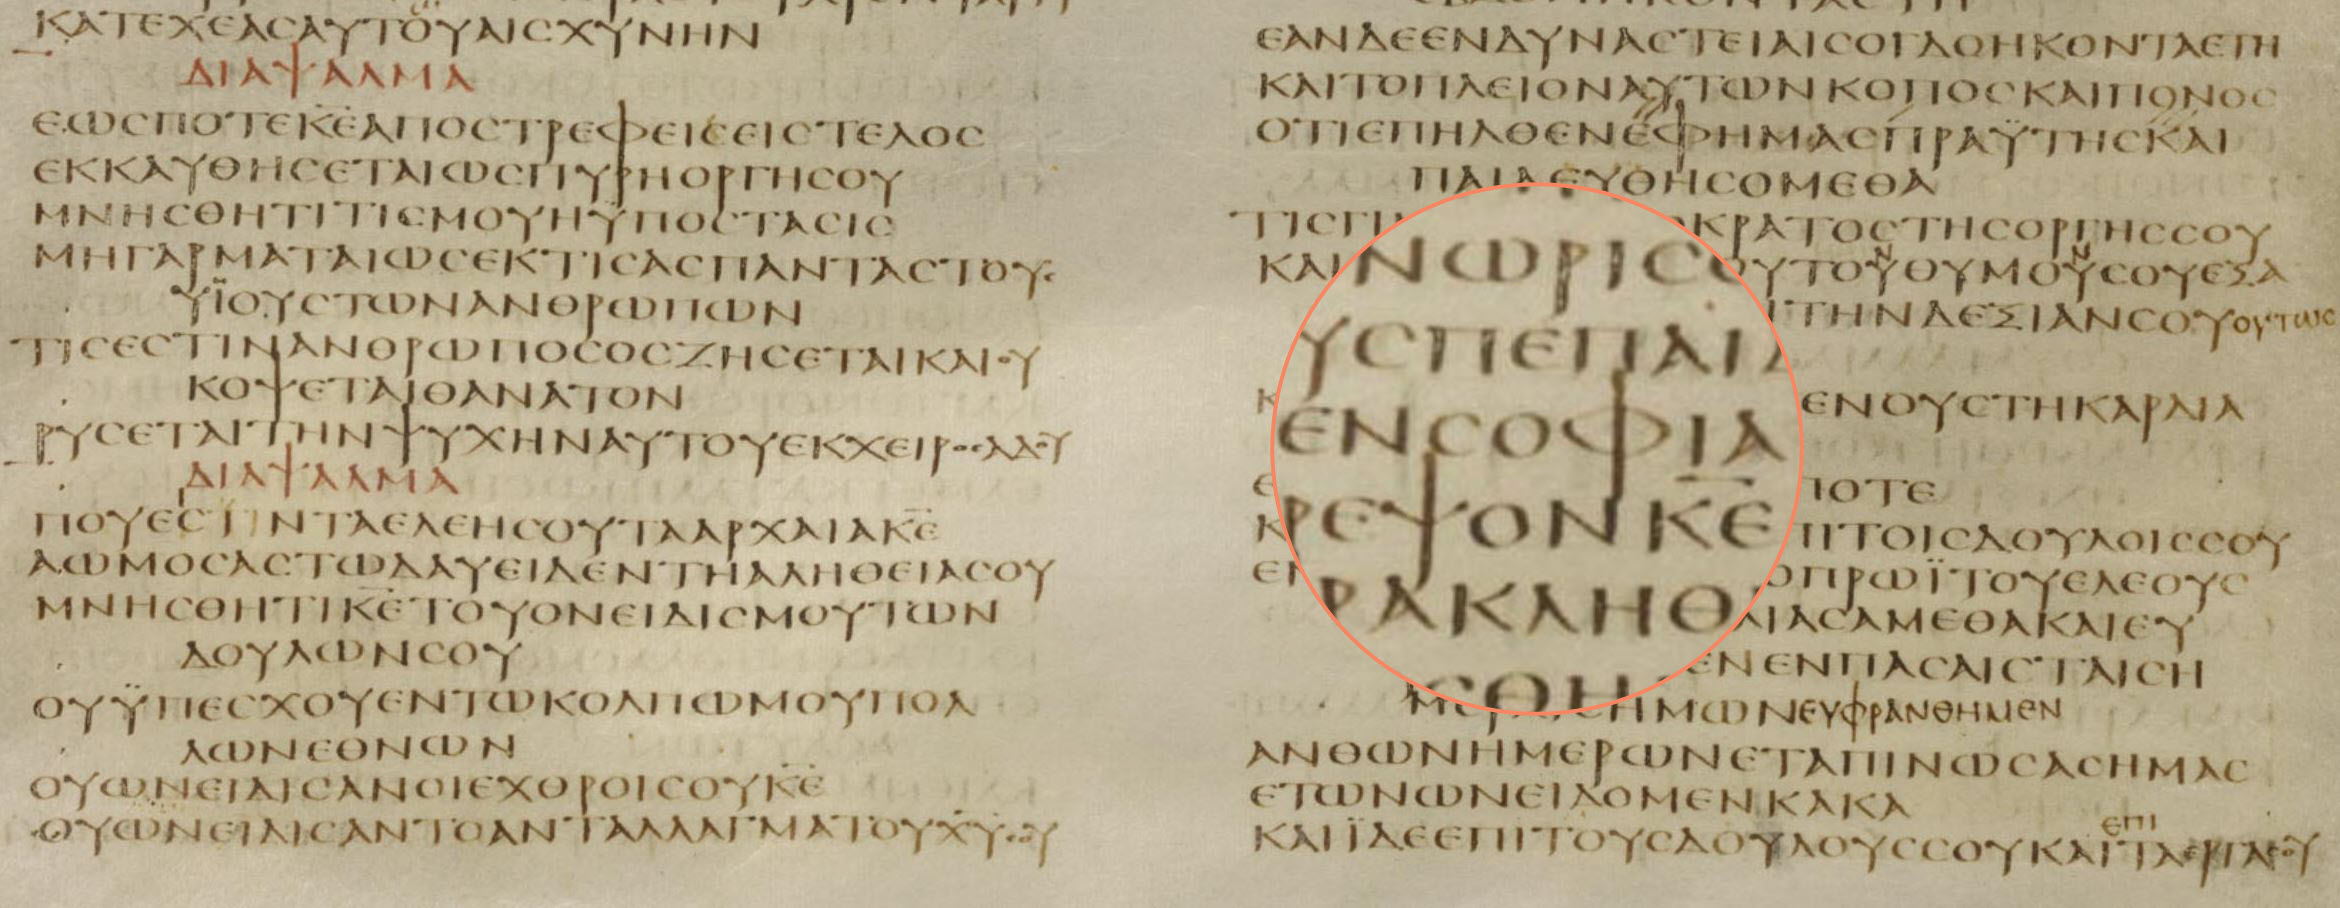 ΚΑΤΕΧΕΑΣΑΥΤΟΥΑΙΣΧΥΝΗΝ
ΔΙΑΨΑΛΜΑ
ΕΩΣΠΟΤΕΚΕΑΠΟΣΤΡΕΦΕΙΣΕΙΣΤΕΛΟΣ
ΕΚΚΑΥΘΗΣΕΤΑΙΩΣΠΥΡΗΟΡΓΗΣΟΥ
ΜΝΗΣΘΗΤΙΤΙΣΜΟΥΗΫΠΟΣΤΑΣΙΣ
ΜΗΓΑΡΜΑΤΑΙΩΣΕΚΤΙΣΑΣΠΑΝΤΑΣΤΟΥΣ
ΥΪΟΥΣΤΩΝΑΝΘΡΩΠΩΝ
ΤΙΣΕΣΤΙΝΑΝΘΡΩΠΟΣΟΣΖΗΣΕΤΑΙΚΑΙΟΥ
ΚΟΨΕΤΑΙΘΑΝΑΤΟΝ
ΡΥΣΕΤΑΙΤΗΝΨΥΧΗΝΑΥΤΟΥΕΚΧΕΙΡΟΣΑΔΟΥ
ΔΙΑΨΑΛΜΑ
ΠΟΥΕΣΤΙΝΤΑΕΛΕΗΣΟΥΤΑΑΡΧΑΙΑΚΕ
ΑΩΜΟΣΑΣΤΩΔΑΥΕΙΔΕΝΤΗΑΛΗΘΕΙΑΣΟΥ
ΜΝΗΣΘΗΤΙΚΕΤΟΥΟΝΕΙΔΙΣΜΟΥΤΩΝ
ΔΟΥΛΩΝΣΟΥ
ΟΥΫΠΕΣΧΟΥΕΝΤΩΚΟΛΠΩΜΟΥΠΟΛ
ΛΩΝΕΘΝΩΝ
ΟΥΩΝΕΙΔΙΣΑΝΟΙΕΧΘΡΟΙΣΟΥΚΕ
ΟΥΩΝΕΙΔΙΣΑΝΤΟΑΝΤΑΛΛΑΓΜΑΤΟΥΧΥΣΟΥ
ΕΑΝΔΕΕΝΔΥΝΑΣΤΕΙΑΙΣΟΓΔΟΗΚΟΝΤΑΕΤΗ
ΚΑΙΤΟΠΛΕΙΟΝΑΥΤΩΝΚΟΠΟΣΚΑΙΠΟΝΟΣ
ΟΤΙΕΠΗΛΘΕΝΕΦΗΜΑΣΠΡΑΫΤΗΣΚΑΙ
ΠΑΙΔΕΥΘΗΣΟΜΕΘΑ
ΤΙΣΓΙ ΚΡΑΤΟΣΤΗΣΟΡΓΗΣΣΟΥ
ΚΑΙ ΥΤΟΥΘΥΜΟΥΣΟΥΕΞΑ
ΝΩΡΙΣΟ
ΤΗΝΔΕΞΙΑΝΣΟΥΟΥΤΩΣ
ΥΣΠΕΠΑΙΔ
ΕΝΟΥΣΤΗΚΑΡΔΙΑ
ΕΝΣΟΦΙΑ
ΠΟΤΕ
ΡΕΨΟΝΚΕ
ΠΙΤΟΙΣΔΟΥΛΟΙΣΣΟΥ
ΟΠΡΩΪΤΟΥΕΛΕΟΥΣ
ΡΑΚΛΗΘ
ΛΙΑΣΑΜΕΘΑΚΑΙΕΥ
ΕΝΕΝΠΑΣΑΙΣΤΑΙΣΗ
ΣΘΗ
ΗΜΩΝΕΥΦΡΑΝΘΗΜΕΝ
ΑΝΘΩΝΗΜΕΡΩΝΕΤΑΠΙΝΩΣΑΣΗΜΑΣ
ΕΤΩΝΩΝΕΙΔΟΜΕΝΚΑΚΑ
ΕΠΙ
ΚΑΙΪΔΕΕΠΙΤΟΥΣΔΟΥΛΟΥΣΣΟΥΚΑΙΤΑΕΡΓΑΣΟΥ